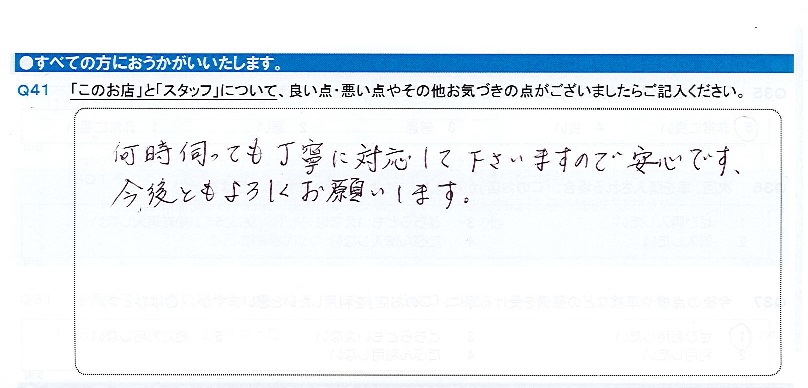 ●すべての方におうかがいいたします。
Q41 「このお店」と「スタッフ」について、良い点・悪い点やその他お気づきの点がございましたらご記入ください。
何時伺っても丁寧に対応して下さいますので安心です、
今後ともよろしくお願いします。